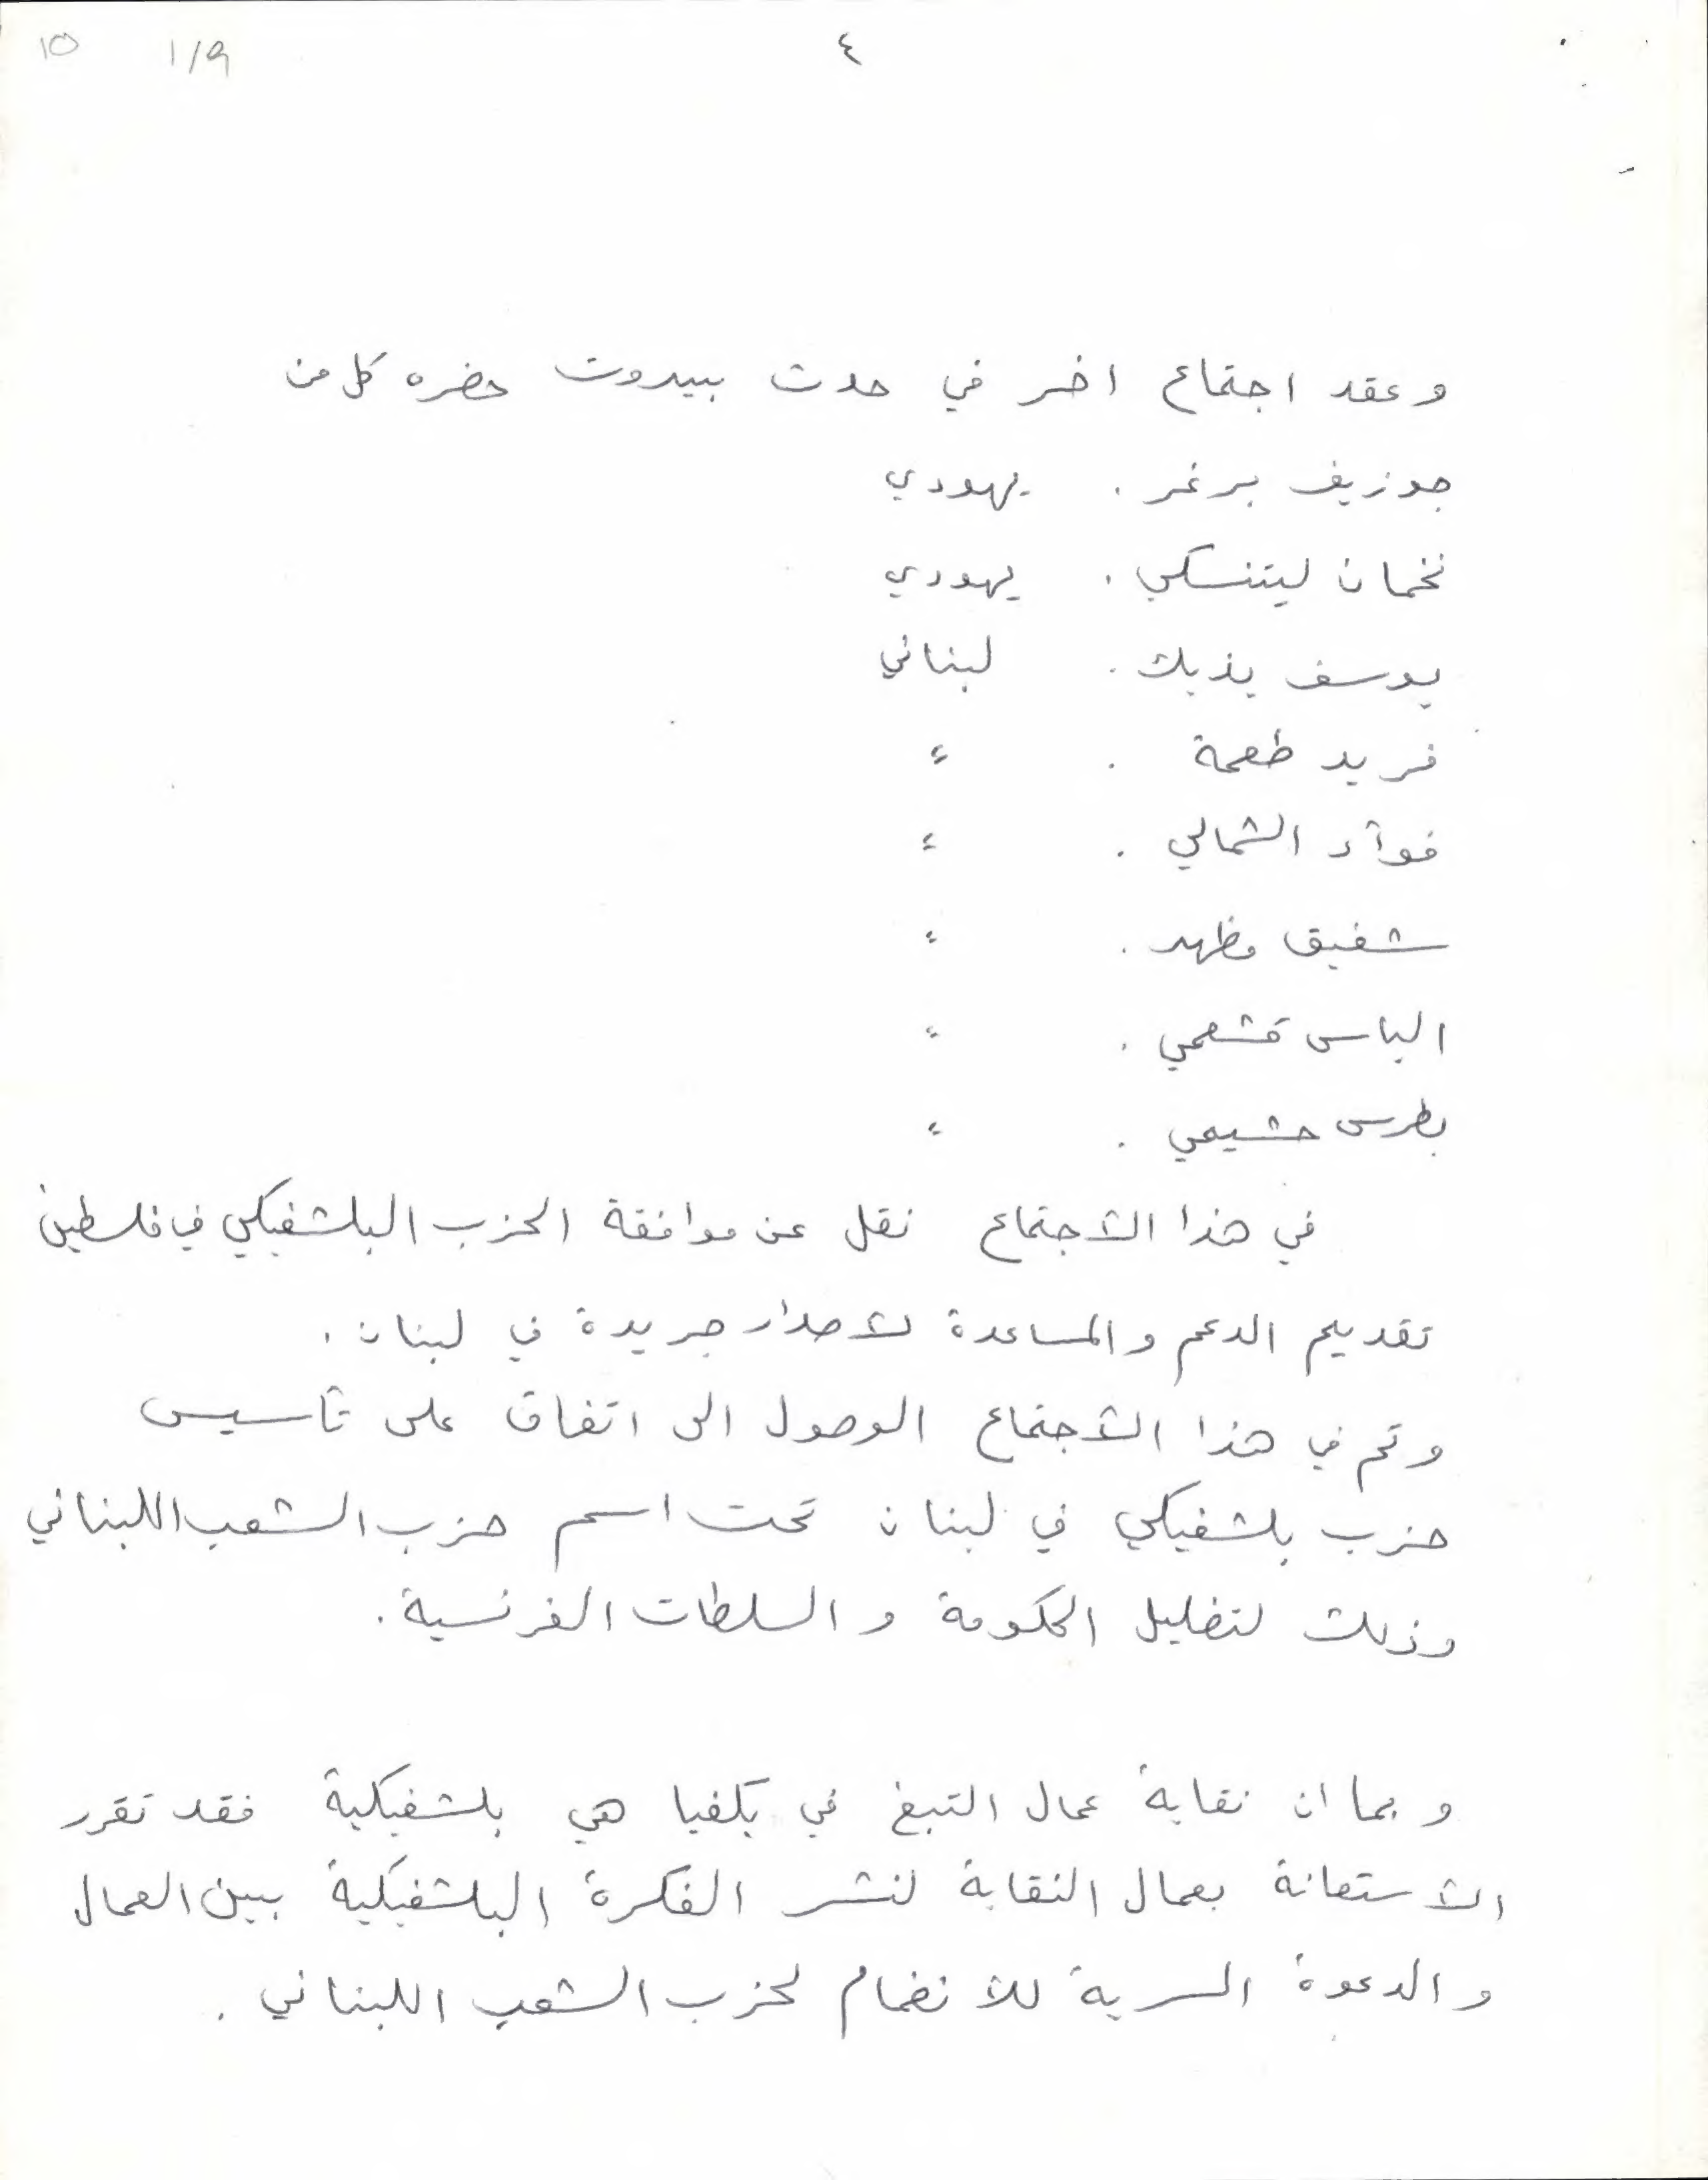 10 1/9 ٤
وعقد اجتماع اخر في حدث بيروت حضره كل من
جوزيف برغر . يهودي
نخمان ليتنسكي . يهودي
يوسف يزبك . لبناني
فريد طعمة . "
فوأد الشمالي . "
شفيق مظهر . "
الياس قشعمي . "
بطرس حشيمي . "
في هذا الاجتماع نقل عن موافقة الحزب البلشفيكي في فلسطين
تقديم الدعم والمساعدة لاصدار جريدة في لبنان .
وتم في هذا الاجتماع الوصول الى اتفاق على تأسيس
حزب بلشفيكي في لبنان تحت اسم حزب الشعب اللبناني
وذلك لتضليل الحكومة والسلطات الفرنسية .
وبما ان نقابة عمال التبغ في بكفيا هي بلشفيكية فقد تقرر
الاستعانة بعمال النقابة لنشر الفكرة البلشفيكية بين العمال
والدعوة السرية للانضمام لحزب الشعب اللبناني .